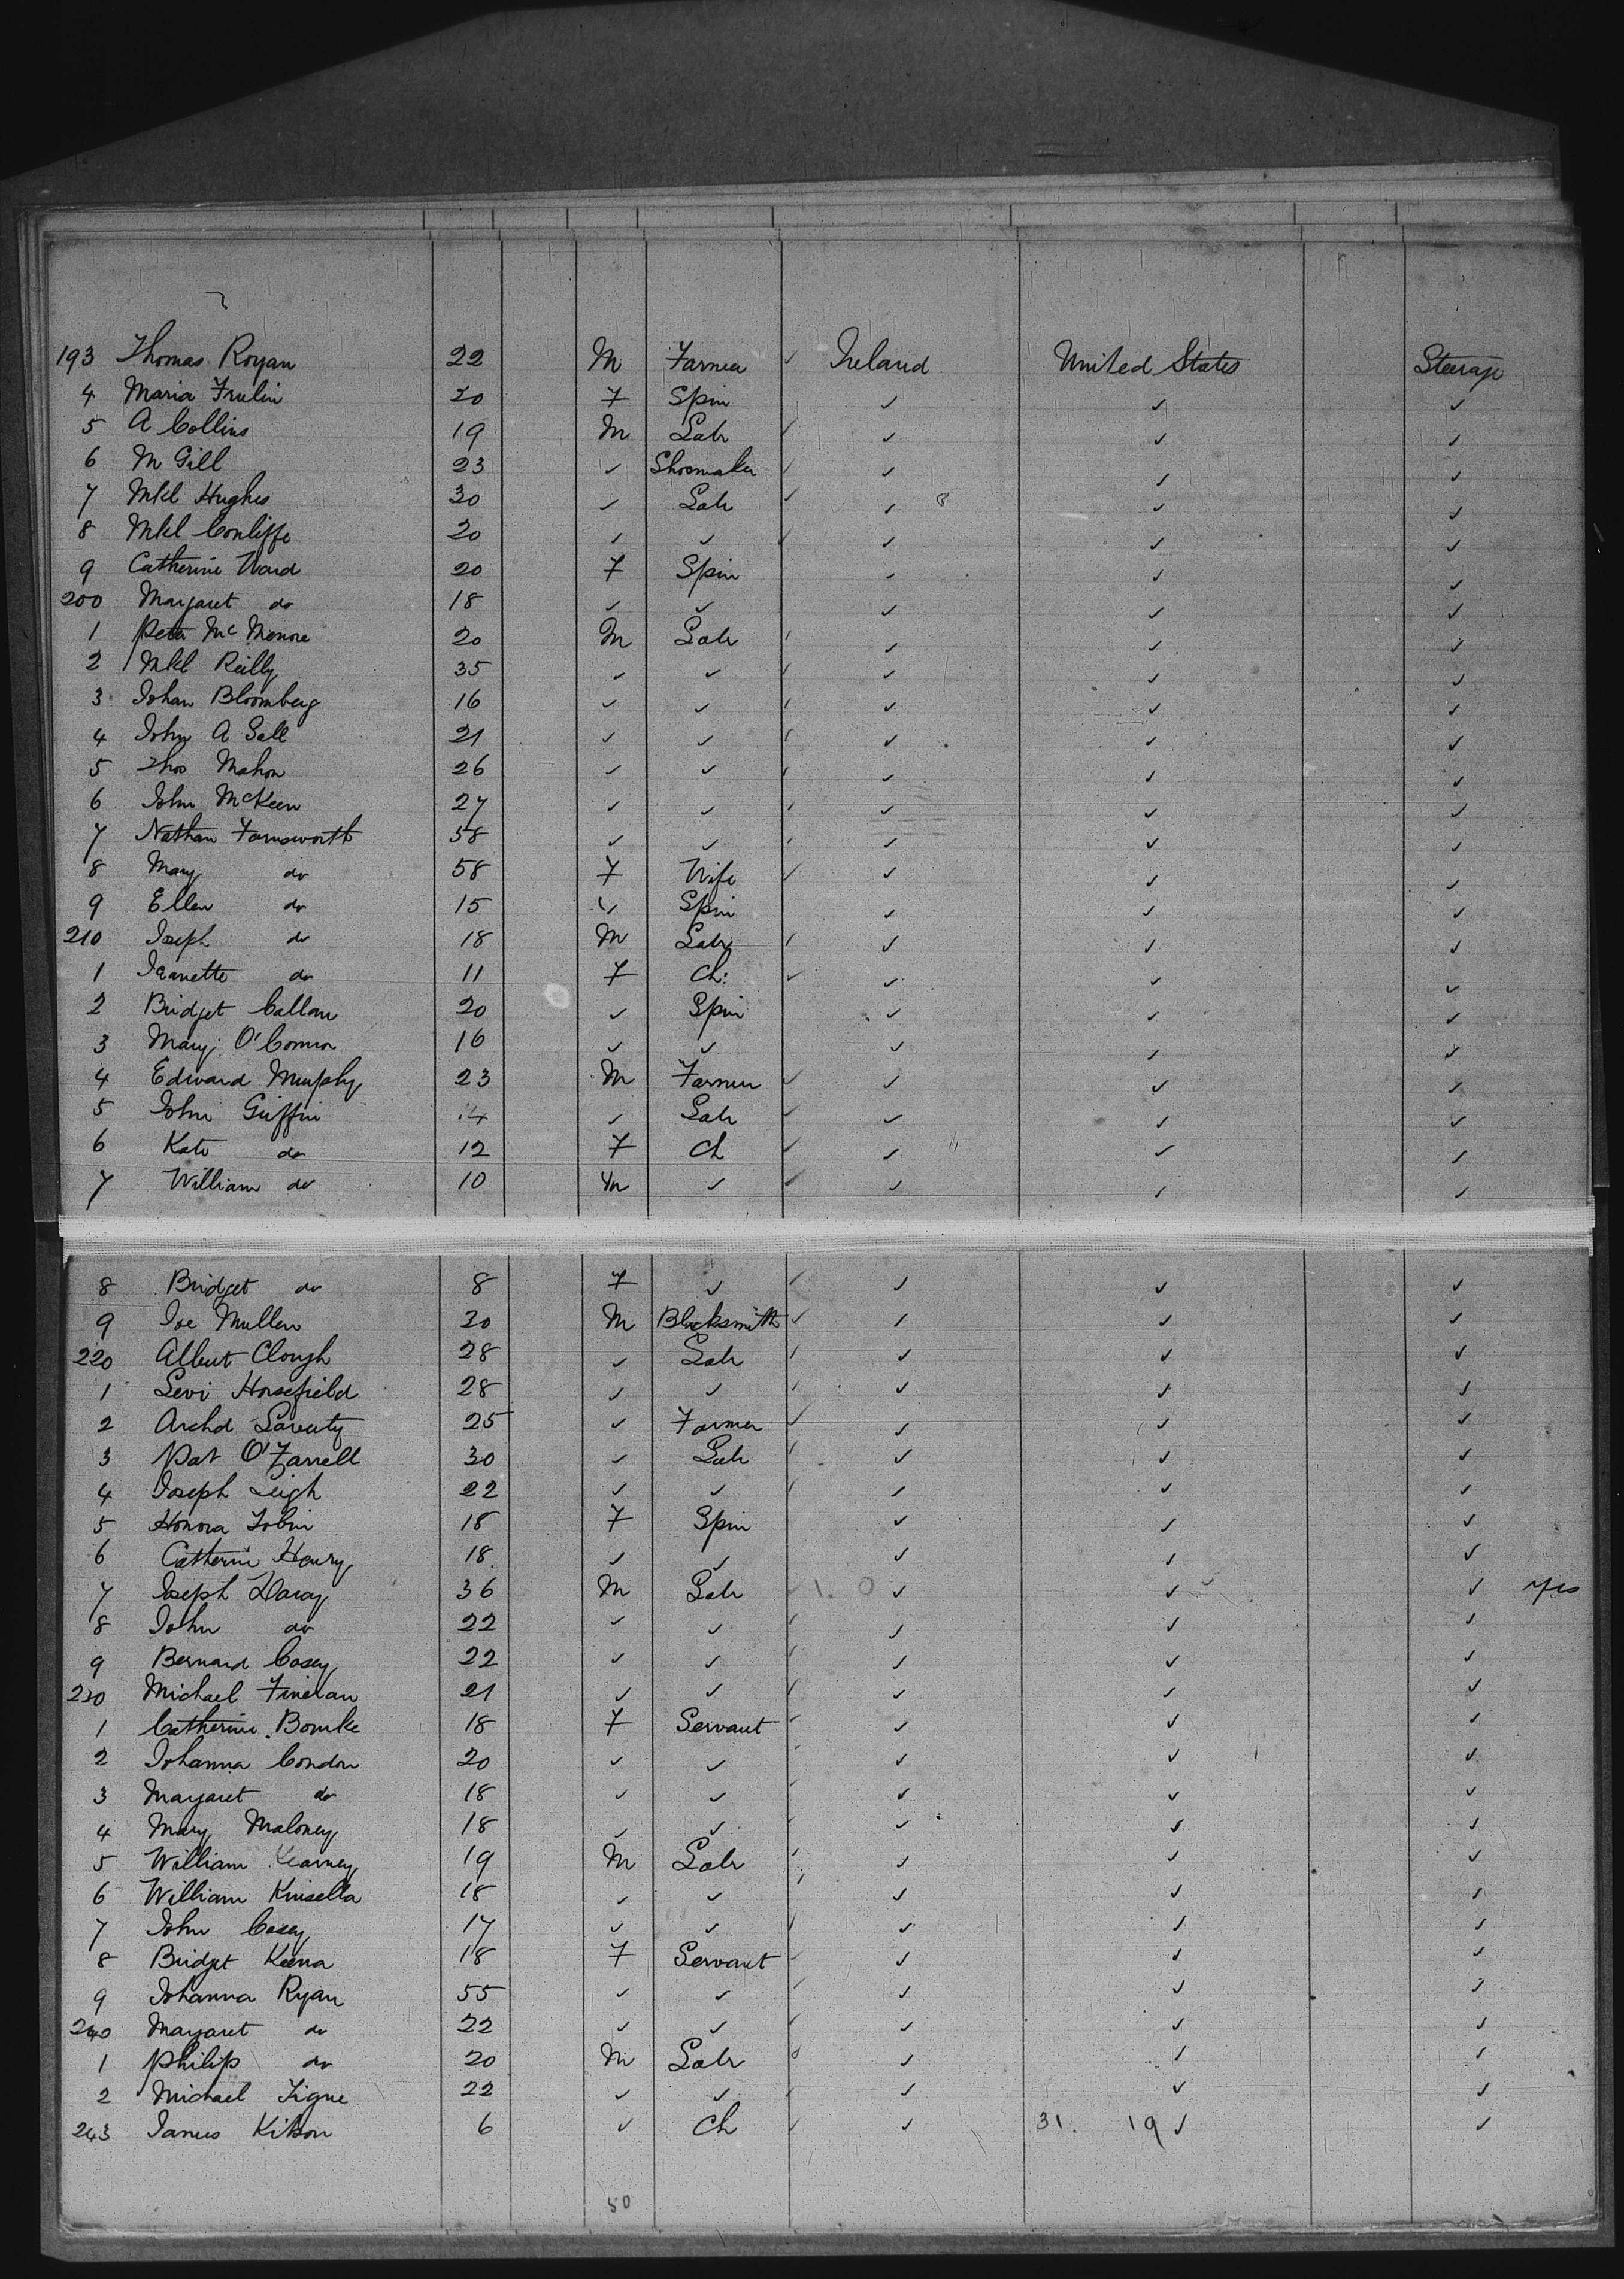 193 Thomas Royan 22 M Farmer ✓ Ireland United States Steerage
4 Maria 20 F Spin ✓ ✓ ✓
5 A Collins 19 M Labr ✓ ✓ ✓ ✓
6 M Gill 23 ✓ Shoemaker ✓ ✓ ✓ ✓
7 Mkl Hughes 30 ✓ Labr ✓ ✓ 8 ✓ ✓
8 Mkl Conliffe 20 ✓ ✓ ✓ ✓ ✓ ✓
9 Catherine Ward 20 F Spin ✓ ✓ ✓
200 Margaret do 18 ✓ ✓ ✓ ✓ ✓
1 Peter 20 M Labr ✓ ✓ ✓ ✓
2 Mkl Reilly 35 ✓ ✓ ✓ ✓ ✓ ✓
3 Johan Bloomberg 16 ✓ ✓ ✓ ✓ ✓ ✓
4 John A 21 ✓ ✓ ✓ ✓ ✓ ✓
5 Thos Mahon 26 ✓ ✓ ✓ ✓ ✓ ✓
6 John McKeen 27 ✓ ✓ ✓ ✓ ✓ ✓
7 Nathan Farnsworth 58 ✓ ✓ ✓ ✓ ✓ ✓
8 Mary do 58 F Wife ✓ ✓ ✓ ✓
9 Ellen do 15 ✓ Spin ✓ ✓ ✓
210 Joseph do 18 M Labr ✓ ✓ ✓ ✓
1 Jeanette do 11 F Ch: ✓ ✓ ✓ ✓
2 Bridget Callan 20 ✓ Spin ✓ ✓ ✓
3 Mary O'Connor 16 ✓ ✓ ✓ ✓ ✓
4 Edward Murphy 23 M Farmer ✓ ✓ ✓ ✓
5 John Griffin 14 ✓ Labr ✓ ✓ ✓ ✓
6 Kate do 12 F Ch ✓ ✓ ✓ ✓
7 William do 10 M ✓ ✓ ✓ ✓ ✓
8 Bridget do 8 F ✓ ✓ ✓ ✓ ✓
9 Joe Mullen 20 M Blacksmith ✓ ✓ ✓ ✓
220 Albert Clough 28 ✓ Labr ✓ ✓ ✓ ✓
1 Levi Horsefield 28 ✓ ✓ ✓ ✓ ✓ ✓
2 Archd 25 ✓ Farmer ✓ ✓ ✓ ✓
3 Pat O'Farrell 30 ✓ Labr ✓ ✓ ✓ ✓
4 Joseph Leigh 22 ✓ ✓ ✓ ✓ ✓ ✓
5 Honora Tobin 18 F Spin ✓ ✓ ✓
6 Catherine Henry 18 ✓ ✓ ✓ ✓ ✓
7 Joseph Darcy 36 M Labr 1. 0 ✓ ✓ ✓ yes
8 John do 22 ✓ ✓ ✓ ✓ ✓ ✓
9 Bernard Casey 22 ✓ ✓ ✓ ✓ ✓ ✓
230 Michael Finelan 21 ✓ ✓ ✓ ✓ ✓ ✓
1 Catherine Bourke 18 F Servant ✓ ✓ ✓ ✓
2 Johanna Condon 20 ✓ ✓ ✓ ✓ ✓
3 Margaret do 18 ✓ ✓ ✓ ✓ ✓ ✓
4 Mary Maloney 18 ✓ ✓ ✓ ✓ ✓ ✓
5 William Kearney 19 M Labr ✓ ✓ ✓ ✓
6 William Kinsella 18 ✓ ✓ ✓ ✓ ✓ ✓
7 John Casey 17 ✓ ✓ ✓ ✓ ✓ ✓
8 Bridget Keena 18 F Servant ✓ ✓ ✓ ✓
9 Johanna Ryan 55 ✓ ✓ ✓ ✓ ✓ ✓
240 Margaret do 22 ✓ ✓ ✓ ✓ ✓ ✓
1 Philip do 20 M Labr ✓ ✓ ✓
2 Michael Tigue 22 ✓ ✓ ✓ ✓ ✓ ✓
243 James Kitson 6 ✓ Ch ✓ ✓ 31. 19 ✓ ✓
50